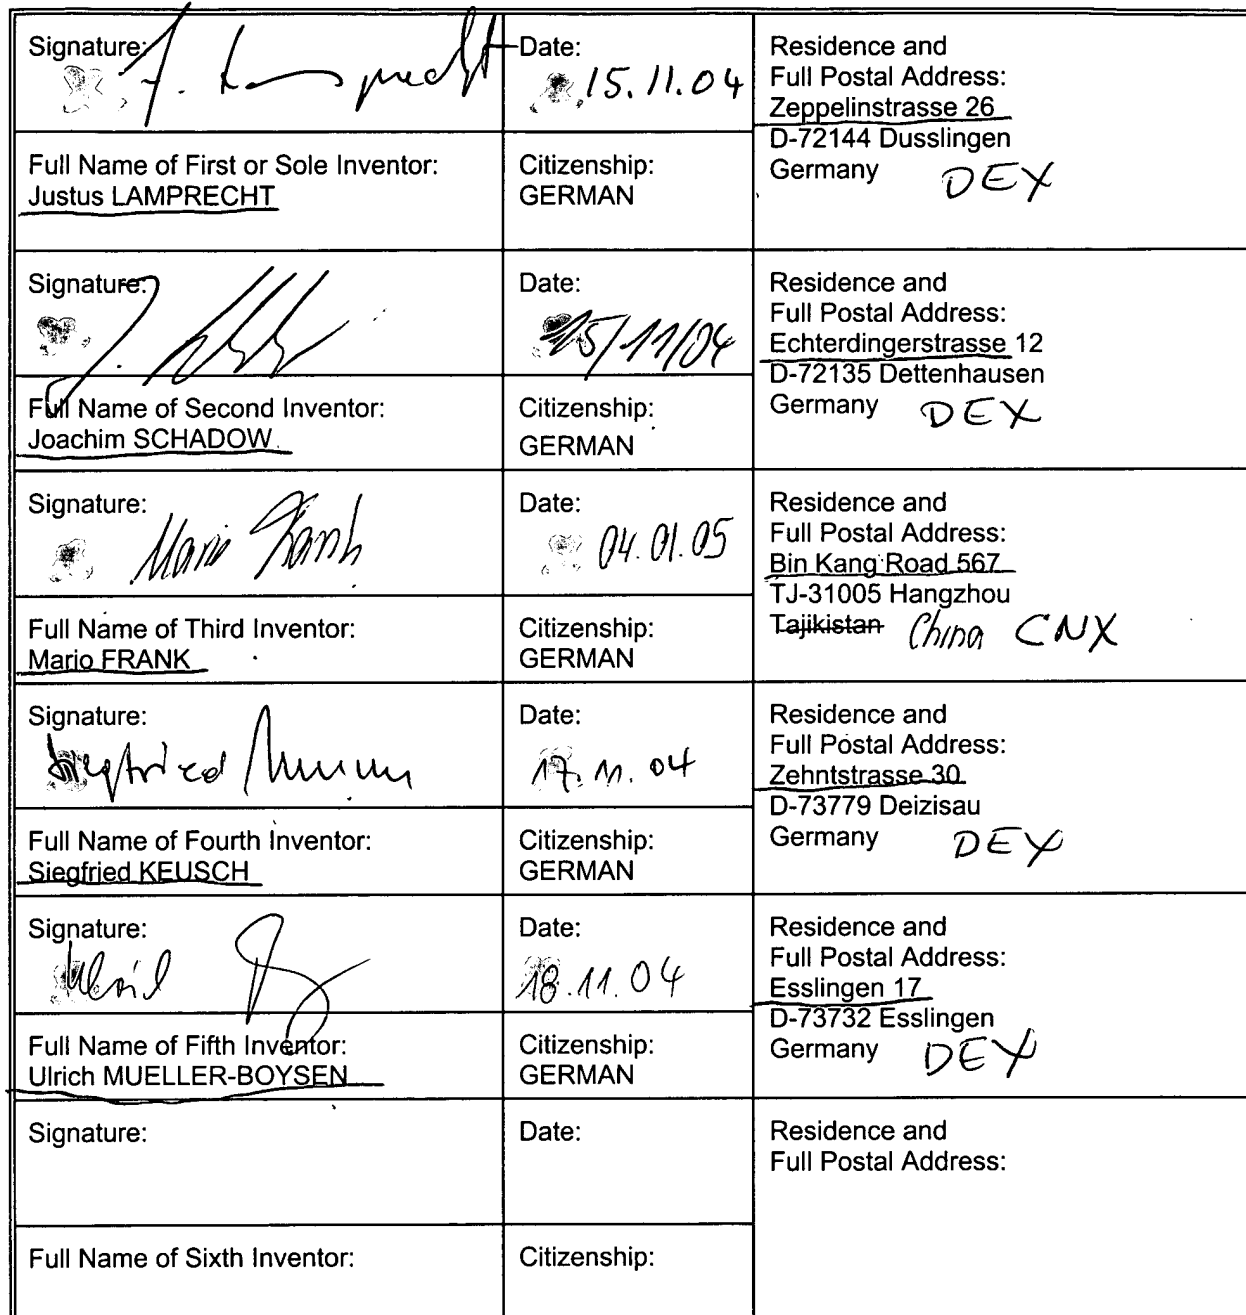 Signature:
J. Lamprecht
Date:
15.11.04
Residence and
Full Postal Address:
Zeppelinstrasse 26
D-72144 Dusslingen
Germany DEX
Full Name of First or Sole Inventor:
Justus LAMPRECHT
Citizenship:
GERMAN
Signature:
J.
Date:
15/11/04
Residence and
Full Postal Address:
Echterdingerstrasse 12
D-72135 Dettenhausen
Germany DEX
Full Name of Second Inventor:
Joachim SCHADOW
Citizenship:
GERMAN
Signature:
Mario Frank
Date:
04.01.05
Residence and
Full Postal Address:
Bin Kang Road 567
TJ-31005 Hangzhou
Tajikistan China CNX
Full Name of Third Inventor:
Mario FRANK
Citizenship:
GERMAN
Signature:
Siegfried
Date:
17.11.04
Residence and
Full Postal Address:
Zehntstrasse 30
D-73779 Deizisau
Germany DEX
Full Name of Fourth Inventor:
Siegfried KEUSCH
Citizenship:
GERMAN
Signature:
Date:
18.11.04
Residence and
Full Postal Address:
Esslingen 17
D-73732 Esslingen
Germany DEX
Full Name of Fifth Inventor:
Ulrich MUELLER-BOYSEN
Citizenship:
GERMAN
Signature:
Date:
Residence and
Full Postal Address:
Full Name of Sixth Inventor:
Citizenship: